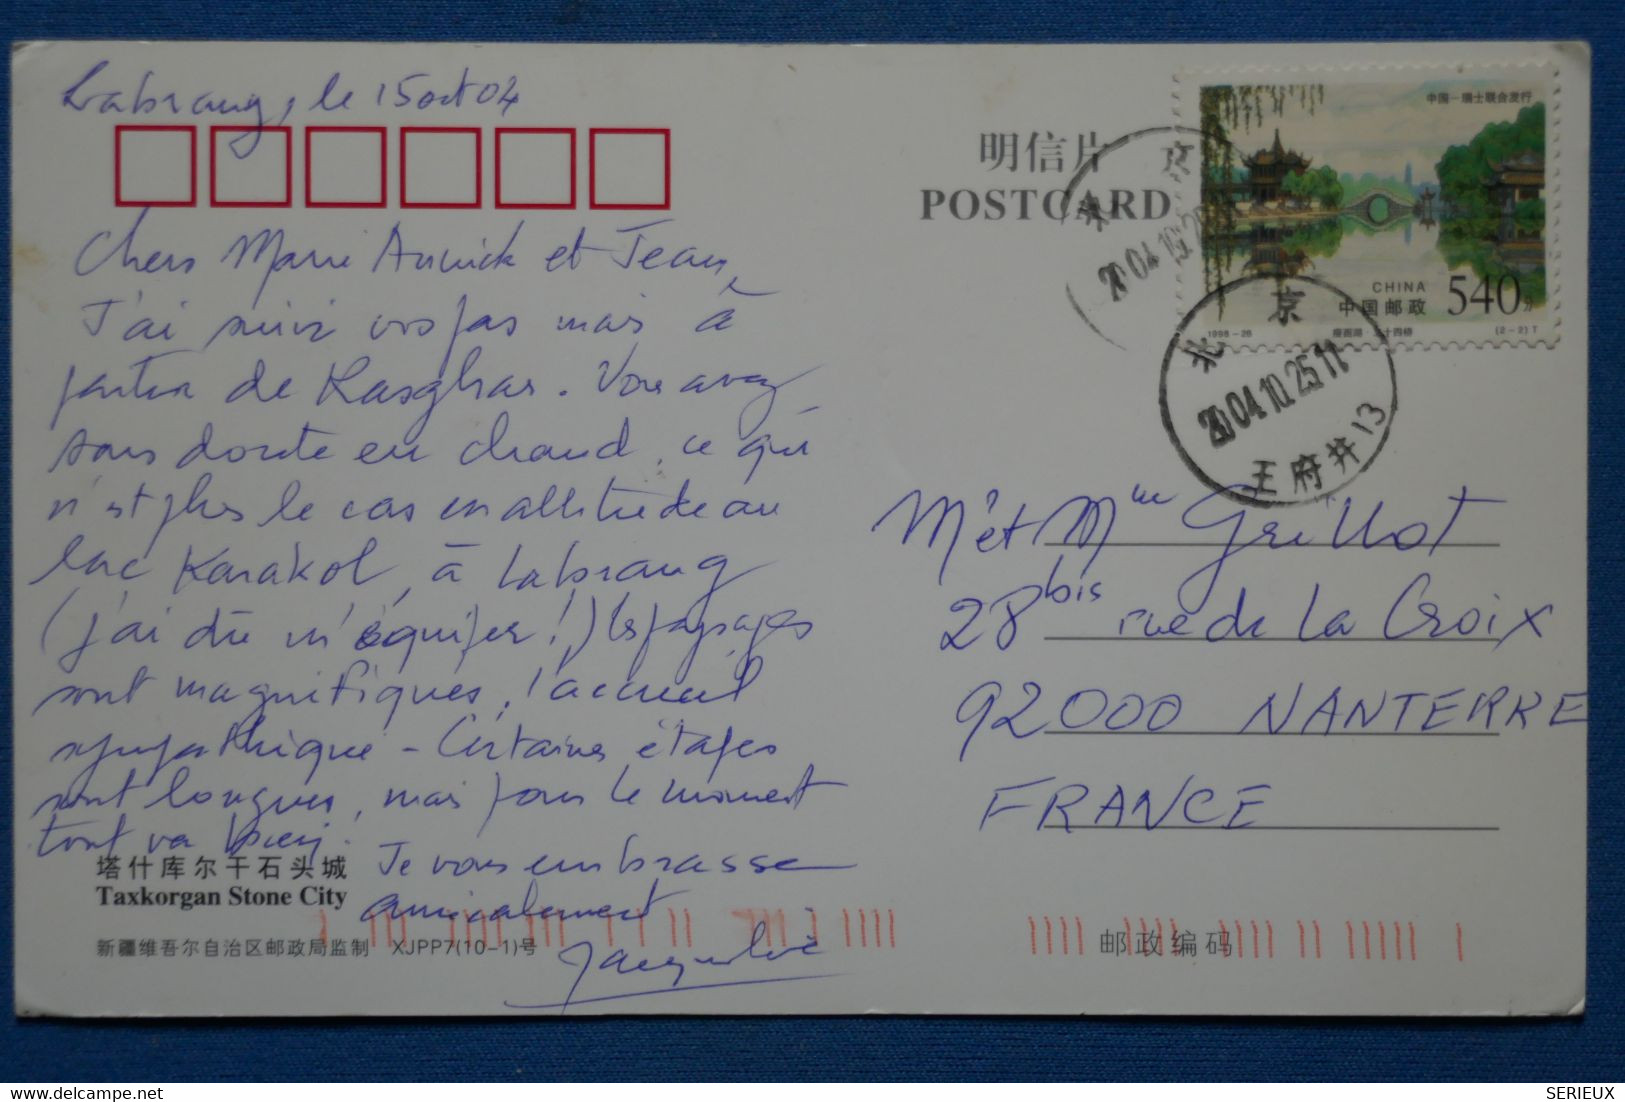 Labrang, le 15 oct 04
明信片
POSTCARD
中国—瑞士联合发行
CHINA
中国邮政
540分
1998-26
瘦西湖·二十四桥
(2-2)T
京
2004.10.2
北 京
2004.10.25.11
王府井13
Chers Marie Annick et Jean,
J'ai suivi vos pas mais à
partir de Kasghar. Vous avez
sans doute eu chaud, ce qui
n'est plus le cas en altitude au
lac Karakol, à Labrang
(j'ai dû m'équiper!) les paysages
sont magnifiques, l'accueil
sympathique - Certaines étapes
sont longues, mais pour le moment
tout va bien.
Je vous embrasse
amicalement
Jacqueline
M et Mme Grillot
28 bis rue de La Croix
92000 NANTERRE
FRANCE
塔什库尔干石头城
Taxkorgan Stone City
新疆维吾尔自治区邮政局监制 XJPP7(10-1)号
邮政编码
SERIEUX